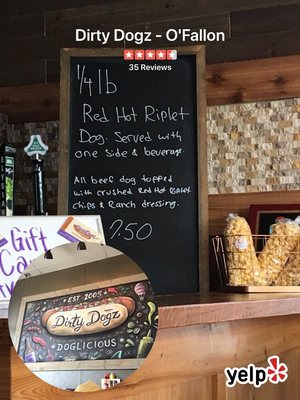 Dirty Dogz - O'Fallon
35 Reviews
1/4 lb
Red Hot Riplet
Dog. Served with
one side & beverage.
All beef dog topped
with crushed Red Hot Riplet
chips & Ranch dressing.
7.50
Gift
EST 2005
Dirty Dogz
DOGLICIOUS
yelp